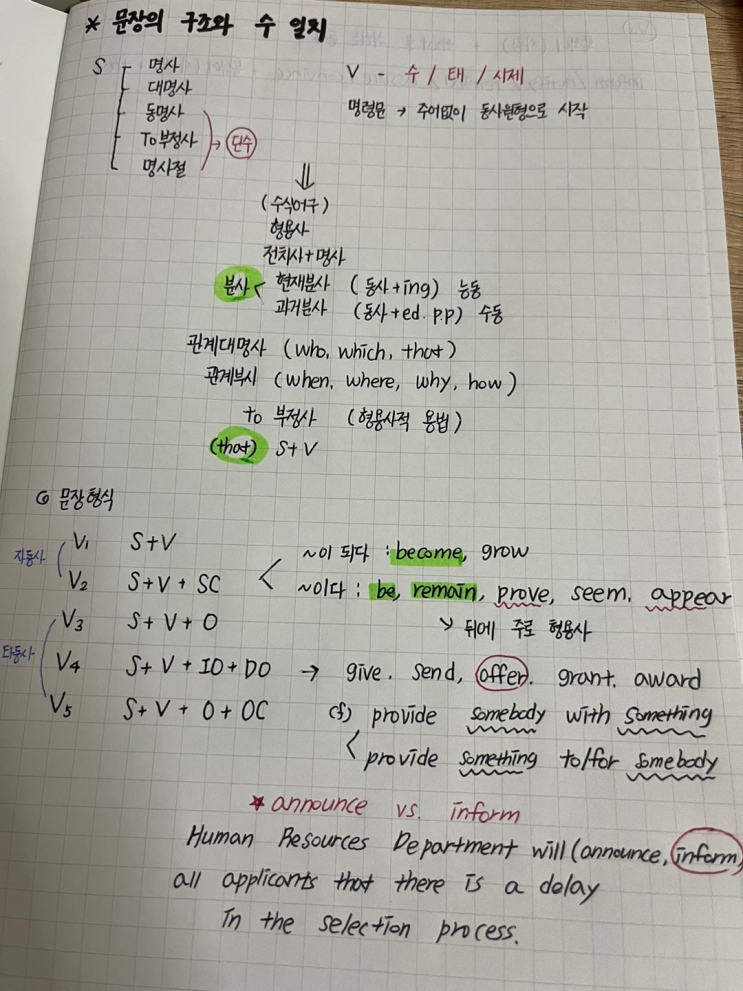 * 문장의 구조와 수 일치
S 명사
대명사
동명사
To부정사 → 단수
명사절
V - 수 / 태 / 시제
명령문 → 주어없이 동사원형으로 시작
⇓
(수식어구)
형용사
전치사+명사
분사 < 현재분사 (동사+ing) 능동
과거분사 (동사+ed. pp) 수동
관계대명사 (who, which, that)
관계부사 (when, where, why, how)
to 부정사 (형용사적 용법)
(that) S+V
문장형식
자동사
V1 S+V
V2 S+V+SC < ~이 되다 : become, grow
~이다 : be, remain, prove, seem, appear
↘ 뒤에 주로 형용사
타동사
V3 S+V+O
V4 S+V+IO+DO → give. send, offer. grant. award
V5 S+V+O+OC
cf) provide somebody with something
< provide something to/for somebody
★ announce vs. inform
Human Resources Department will (announce, inform)
all applicants that there is a delay
in the selection process.